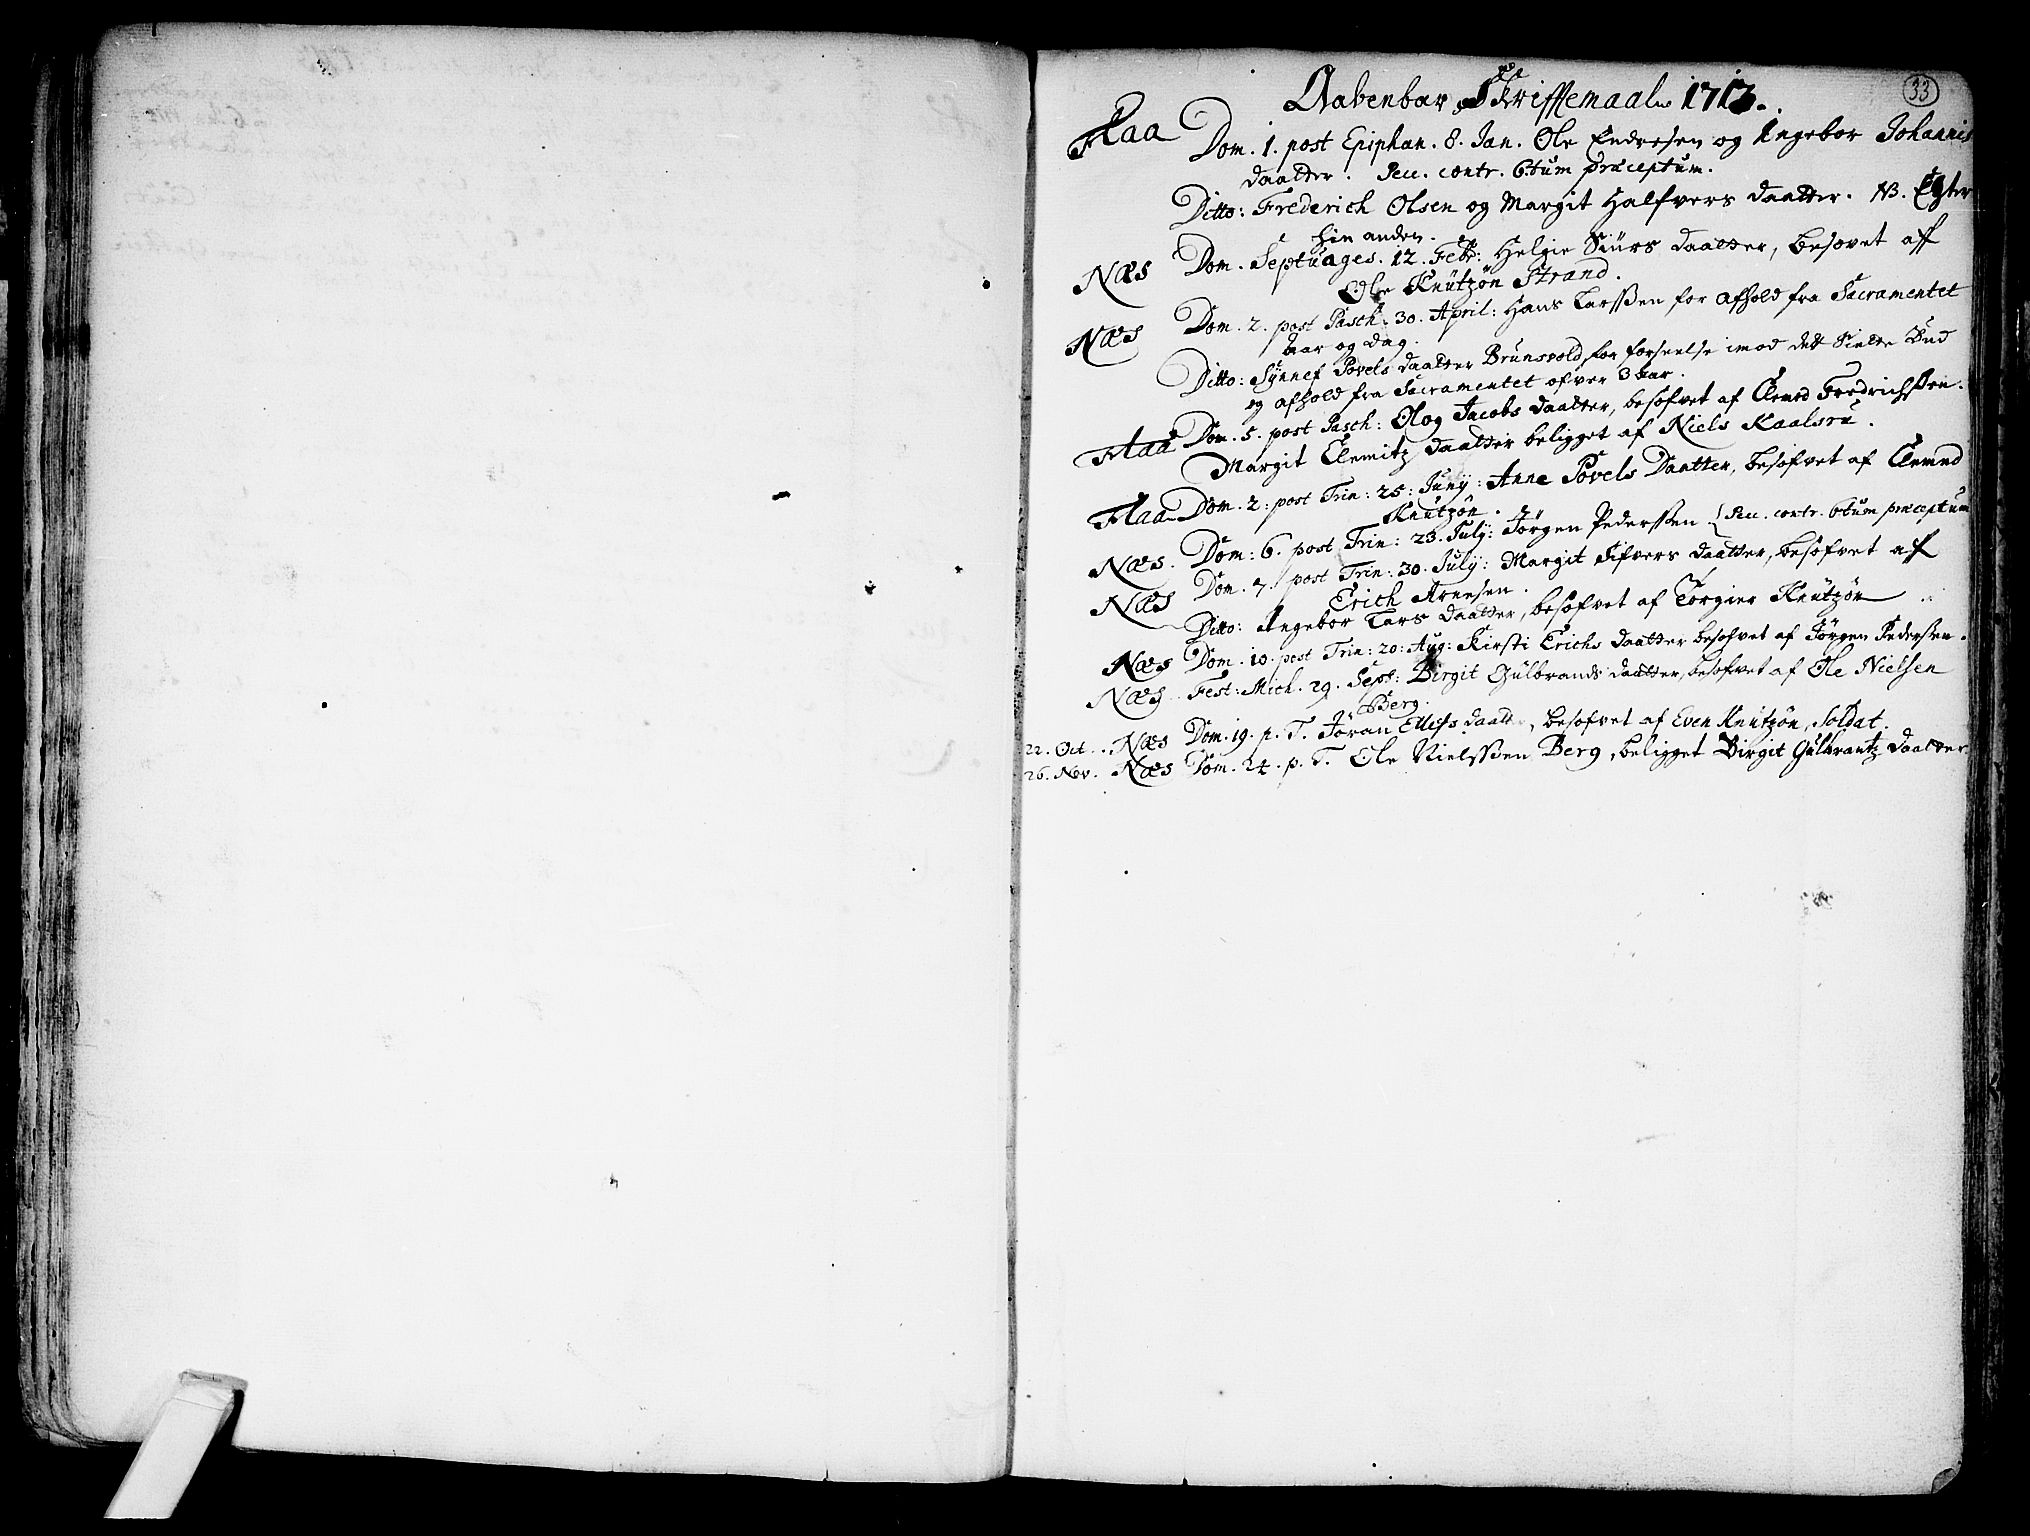 33
Aabenbar Skrifftemaal 1713.
Flaa Dom. 1. post Epiphan. 8. Jan. Ole Endresen og Ingebor Johannis
daatter. Pecc. contr. 6tum præceptum.
Ditto: Frederich Olsen og Margit Halfvers daatter. NB. Egter
hin anden.
Næs Dom. Septuages. 12. Febr: Helgie Siürs daatter, besovet aff
Ole Knützön Strand.
Næs Dom. 2. post Pasch. 30. April: Hans Larssen for afhold fra Sacramentet
aar og dag.
Ditto: Synnef Povels daatter Brunsvold, for forseelse imod dett Siette Bud
og afhold fra Sacramentet ofver 3 aar.
Flaa Dom. 5. post Pasch: Olog Jacobs daatter, besofvet af Clemed Fredrichssen.
Margit Clemitz daatter beligget af Niels Kaalsrü.
Flaa Dom. 2: post Trin: 25: Juny: Anne Povels Daatter, besofvet af Clemed
Knützön.
Næs. Dom: 6. post Trin: 23. July: Jörgen Pederssen Pecc. contr. 6tum præceptum
Næs Dom. 7. post Trin: 30. July: Margit Sifvers daatter, besofvet af
Erich Arnesen.
Ditto: Ingebor Lars daatter, besofvet af Torgier Knützön
Næs Dom. 10. post Trin: 20: Aug: Kirsti Erichs daatter besofvet af Jörgen Pederssen.
Næs Fest: Mich. 29. Sept: Birgit Gülbrands daatter, besofvet af Ole Nielsen
Berg.
22. Oct. Næs Dom. 19. p. T. Jöran Ellefs daatter, besofvet af Even Knützön, Soldat.
26. Nov. Næs Dom. 24. p. T. Ole Nielssen Berg, beligget Birgit Gülbrantz daatter